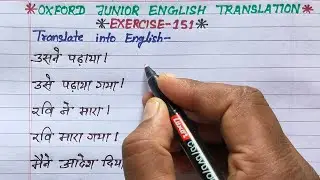 *OXFORD JUNIOR ENGLISH TRANSLATION*
*EXERCISE-151*
Translate into English-
उसने पढ़ाया।
उसे पढ़ाया गया।
रवि ने मारा।
रवि मारा गया।
मैंने आदेश दिया,